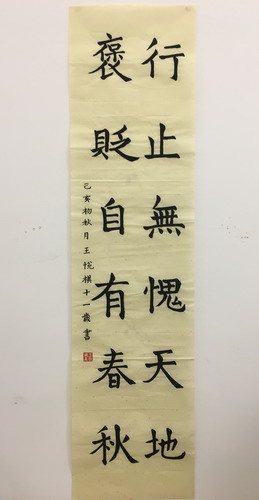 行止無愧天地
褒貶自有春秋
己亥初秋月王悦棋十一歲書